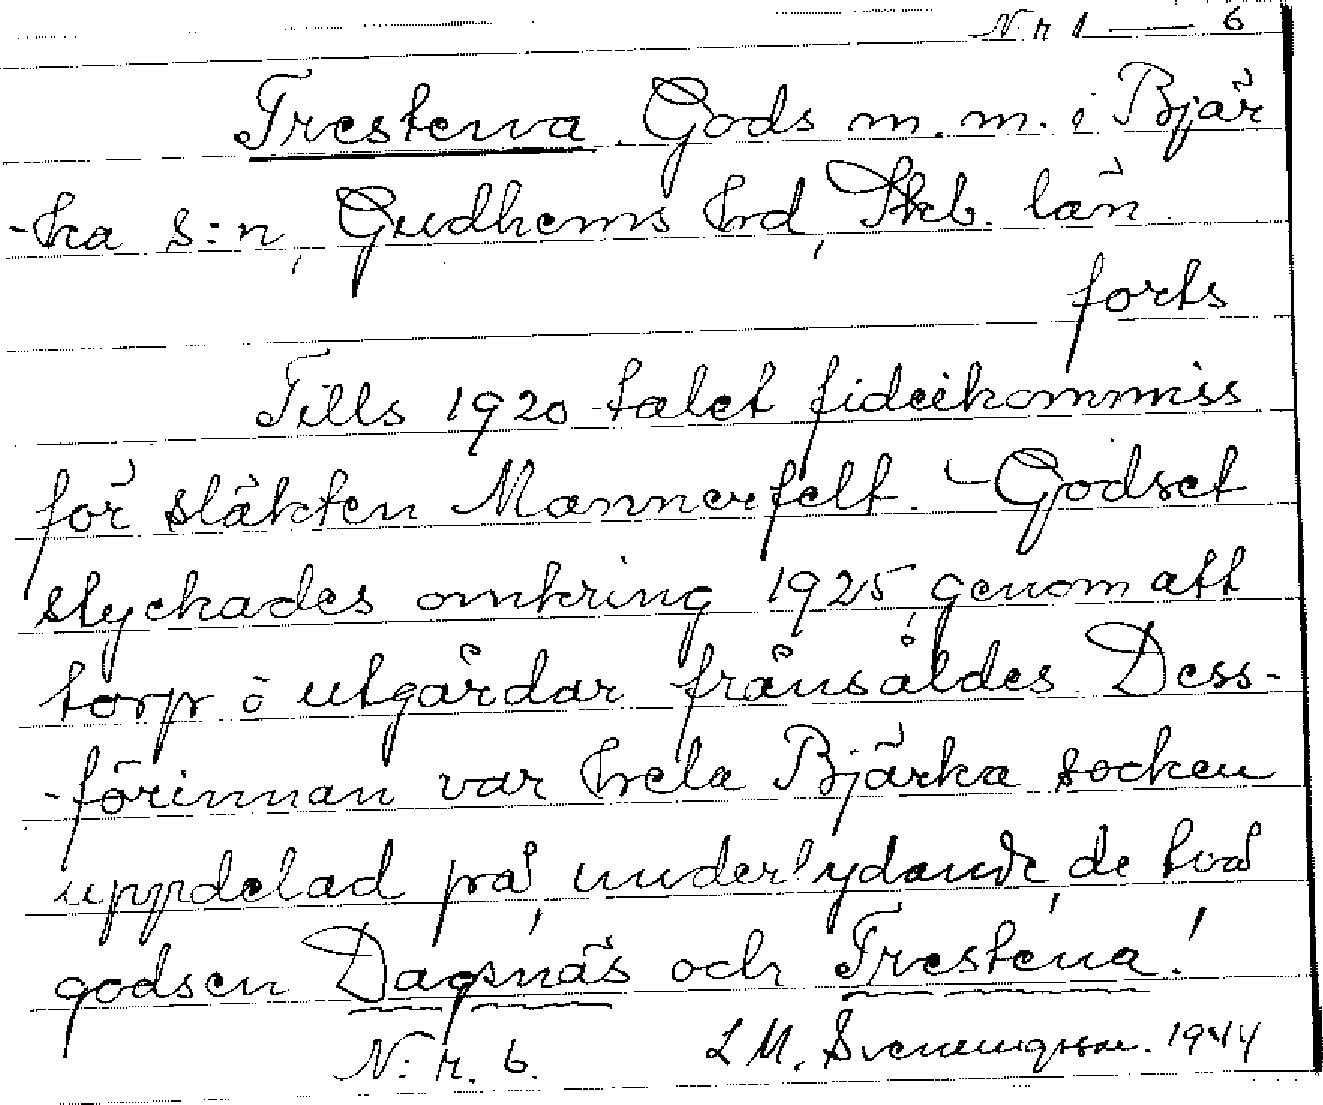 N.r 1 — 6
Trestena. Gods m.m. i Bjär
-ka s:n, Gudhems hrd, Skb. län
forts
Tills 1920-talet fideikommiss
för släkten Mannerfelt. - Godset
styckades omkring 1925, genom att
torp o utgårdar frånsåldes Dess-
-förinnan var hela Bjärka socken
uppdelad på, underlydande, de två
godsen Dagsnäs och Trestena!
N:r. 6. L M. Svenungsson. 1944